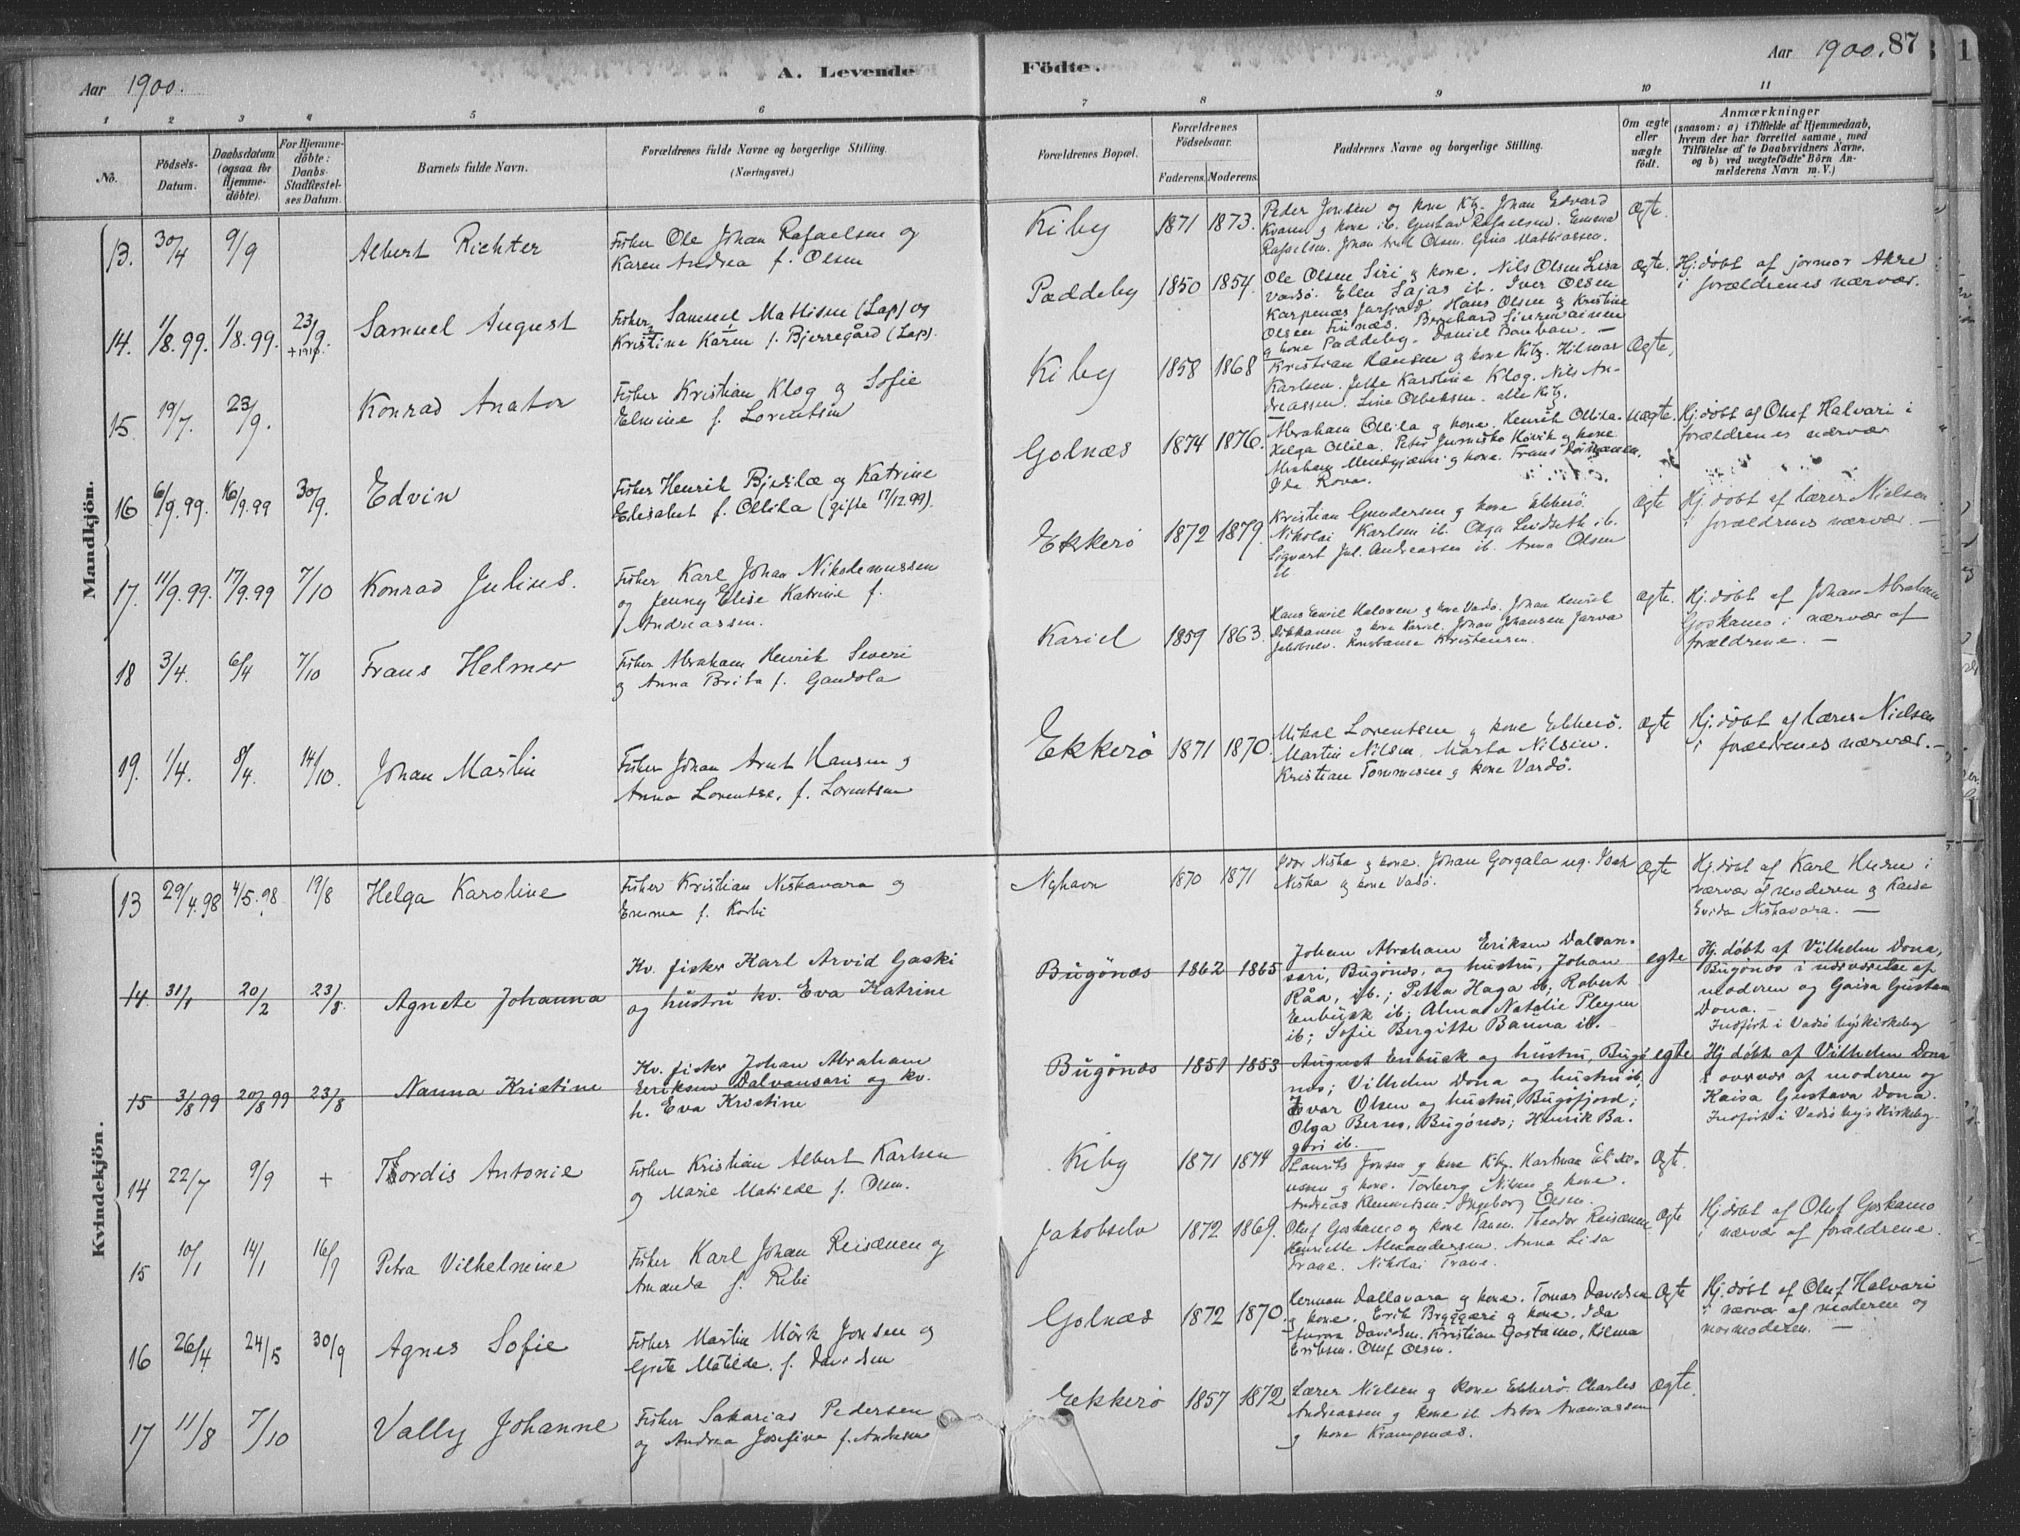 Aar 1900.
A. Levende
Födte.
Aar 1900. 87
1 2 3 4 5 6
7 8 9 10 11
No.
Födsels-
Datum.
Daabsdatum
(ogsaa for
Hjemme-
döbte).
For Hjemme-
döbte:
Daabs-
Stadfæstel-
ses Datum.
Barnets fulde Navn.
Forældrenes fulde Navne og borgerlige Stilling.
(Næringsvei.)
Forældrenes Bopæl.
Forældrenes
Födselsaar.
Faderens. Moderens.
Faddernes Navne og borgerlige Stilling.
Om ægte
eller
uægte
födt.
Anmærkninger
(saasom: a) i Tilfælde af Hjemmedaab,
hvem der har forrettet samme, med
Tilföielse af to Daabsvidners Navne,
og b) ved uægtefödte Börn An-
melderens Navn m. V.)
Mandkjön.
13. 30/4 9/9 Albert Richter
Fisker Ole Johan Rafaelsen og
Karen Andrea f. Olsen
Kiby 1871 1873.
Peder Jonsen og kone Kby. Johan Edvard
Kvam og kone ib. Gustav Rafaelsen. Emma
Rafaelsen. Johan Olsen. Gina Mathiassen.
Ægte.
14. 1/8.99. 1/8.99. 23/9. Samuel August
Fisker Samuel Mattisen (Lap) og
Kristine Karen f. Bjerregård (Lap).
Paddeby 1850 1854.
Ole Olsen Siri og kone. Nils Olsen Lisa
Vadsö. Elen Sajas ib. Iver Olsen
Karpenæs Jarfjord. Hans Olsen og Kristine
Olsen Finnæs. Bernhard
og kone Paddeby. Daniel Banban. —
Ægte. Hj. döbt af jormor Akre
i forældrenes nærvær.
15. 19/7. 23/9. Konrad Anaton
Fisker Kristian Klog og Sofie
Elmine f. Lorentsen
Kiby 1858 1868
Kristian Hansen og kone Kby. Hilmar
Karlsen. Jette Karoline Klog. Nils An-
dreassen. Line Olbetsen. alle Kby.
Ægte,
16 6/9.99. 16/9.99 30/9. Edvin
Fisker Henrik Bjetilæ og Katrine
Elisabet f. Ollila (gifte 17/12.99).
Golnæs 1874 1876.
Abraham Ollila og kone. Henrik Ollila.
Helga Ollila. Peter Kivik og kone
Abraham og kone. Frans
Ida Rova.
uægte. Hj. döbt af Oluf Halvari i
forældrenes nærvær
17. 11/9.99. 17/9.99 7/10 Konrad Julius.
Fisker Karl Johan Nikodemussen
og Jenny Elise Katrine f.
Andreassen.
Ekkerö 1872 1879.
Kristian Gundersen og kone Ekkerö.
Nikolai Karlsen ib. Olga Leidseth ib.
Sigvart Jul. Andreassen ib. Anna Olsen
ib
Ægte Hj. döbt af lærer Nielsen
i forældrenes nærvær —
18 3/4. 6/4 7/10 Frans Helmer
Fisker Abraham Henrik Severi
og Anna Brita f. Gandola
Kariel 1859 1863.
Hans Emil Halonen og kone Vadsö. Johan Henrik
Dikkanen og kone Kariel. Johan Johansen Jarva
Jakobselv. Konstanse Kristensen.
Ægte. Hj. döbt af Johan Abraham
Goskamo i nærvær af
forældrene. —
19. 1/4. 8/4. 14/10. Johan Martin
Fisker Johan Arnt Hansen og
Anna Lorentse, f. Lorentsen
Ekkerö 1871 1870.
Mikal Lorentsen og kone Ekkerö.
Martin Nilsen. Marta Nilsen.
Kristian Tommesen og kone Vardö.
Ægte Hj. döbt af lærer Nielsen
i forældrenes nærvær. —
Kvindekjön.
13 29/4.98 4/5.98 19/8 Helga Karoline
Fisker Kristian Niskavara og
Emma f. Korbi
Nyhavn 1870 1871
Isak Niska og kone. Johan Gorgala ug. Isak
Niska og kone Vadsö.
Ægte Hj. döbt af Karl Husu i
nærvær af moderen og Kaisa
Evida Niskavara. —
14. 31/1 20/2 23/8. Agnete Johanna
Kv. fisker Karl Arvid Gaski
og hustru kv. Eva Katrine
Bugönæs 1862 1865
Johan Abraham Eriksen Dalvan-
sari, Bugönæs, og hustru, Johan
Råa, ib.; Petra Haga ib; Robert
Enbusk ib; Alma Natalie Pleym
ib; Sofie Birgitte Banna ib.
egte Hj. döbt af Vilhelm Dona,
Bugönæs i nærværelse af
moderen og Gaisa Gustava
Dona. —
Indfört i Vadsö byskirkebog
15 3/8 99 20/8 99 23/8 Nanna Kristine
Kv. fisker Johan Abraham
Eriksen Dalvansari og kv.
h. Eva Kristine
Bugönæs 1851 1853
August Enbusk og hustru, Bugö-
næs; Vilhelm Dona og hustru ib.
Ivar Olsen og hustru, Bugöfjord;
Olga Berno, Bugönæs; Henrik Ba-
gari ib.
egte Hj. döbt af Vilhelm Dona
i nærvær af moderen og
Kaisa Gustava Dona.
Indfört i Vadsö bys Kirkebog.
14 22/7 9/9 + Thordis Antonie
Fisker Kristian Albert Karlsen
og Marie Matilde f. Olsen.
Kiby 1871 1874
Laurits Jonsen og kone Kby. Hartman
og kone. Torberg Nilsen og kone.
Andreas Klemetsen. Ingeborg Olsen.
Ægte.
15 10/1 14/1 16/9 Petra Vilhelmine
Fisker Karl Johan Reisænen og
Amanda f. Ribi
Jakobselv 1872 1869.
Oluf Goskamo og kone Tanen. Theodor Reisænen
Henriette Alexandersen. Anna Lisa
Trane. Nikolai Trane.
Ægte Hj. döbt af Oluf Goskamo
i nærvær af forældrene.
16 26/4 24/5 30/9 Agnes Sofie
Fisker Martin Mörk Jonsen og
Grete Matilde. f. Davidsen
Golnæs 1872 1870.
Herman Dallavara og kone. Tomas Davidsen
og kone. Erik Bryggæri og kone. Ida
Davidsen. Kristian Gostamo. Hilma
Eriksen. Oluf Olsen.
Ægte Hj. döbt af Oluf Halvari
i nærvær af moderen og
mormoderen. —
17 11/8 7/10 Vally Johanne
Fisker Sakarias Pedersen
og Andrea Josefine f. Andersen
Ekkerö 1857 1872
Lærer Nielsen og kone Ekkerö. Charles
Andreassen og kone ib. Anton Ananiassen
og kone Krampenæs.
Ægte.